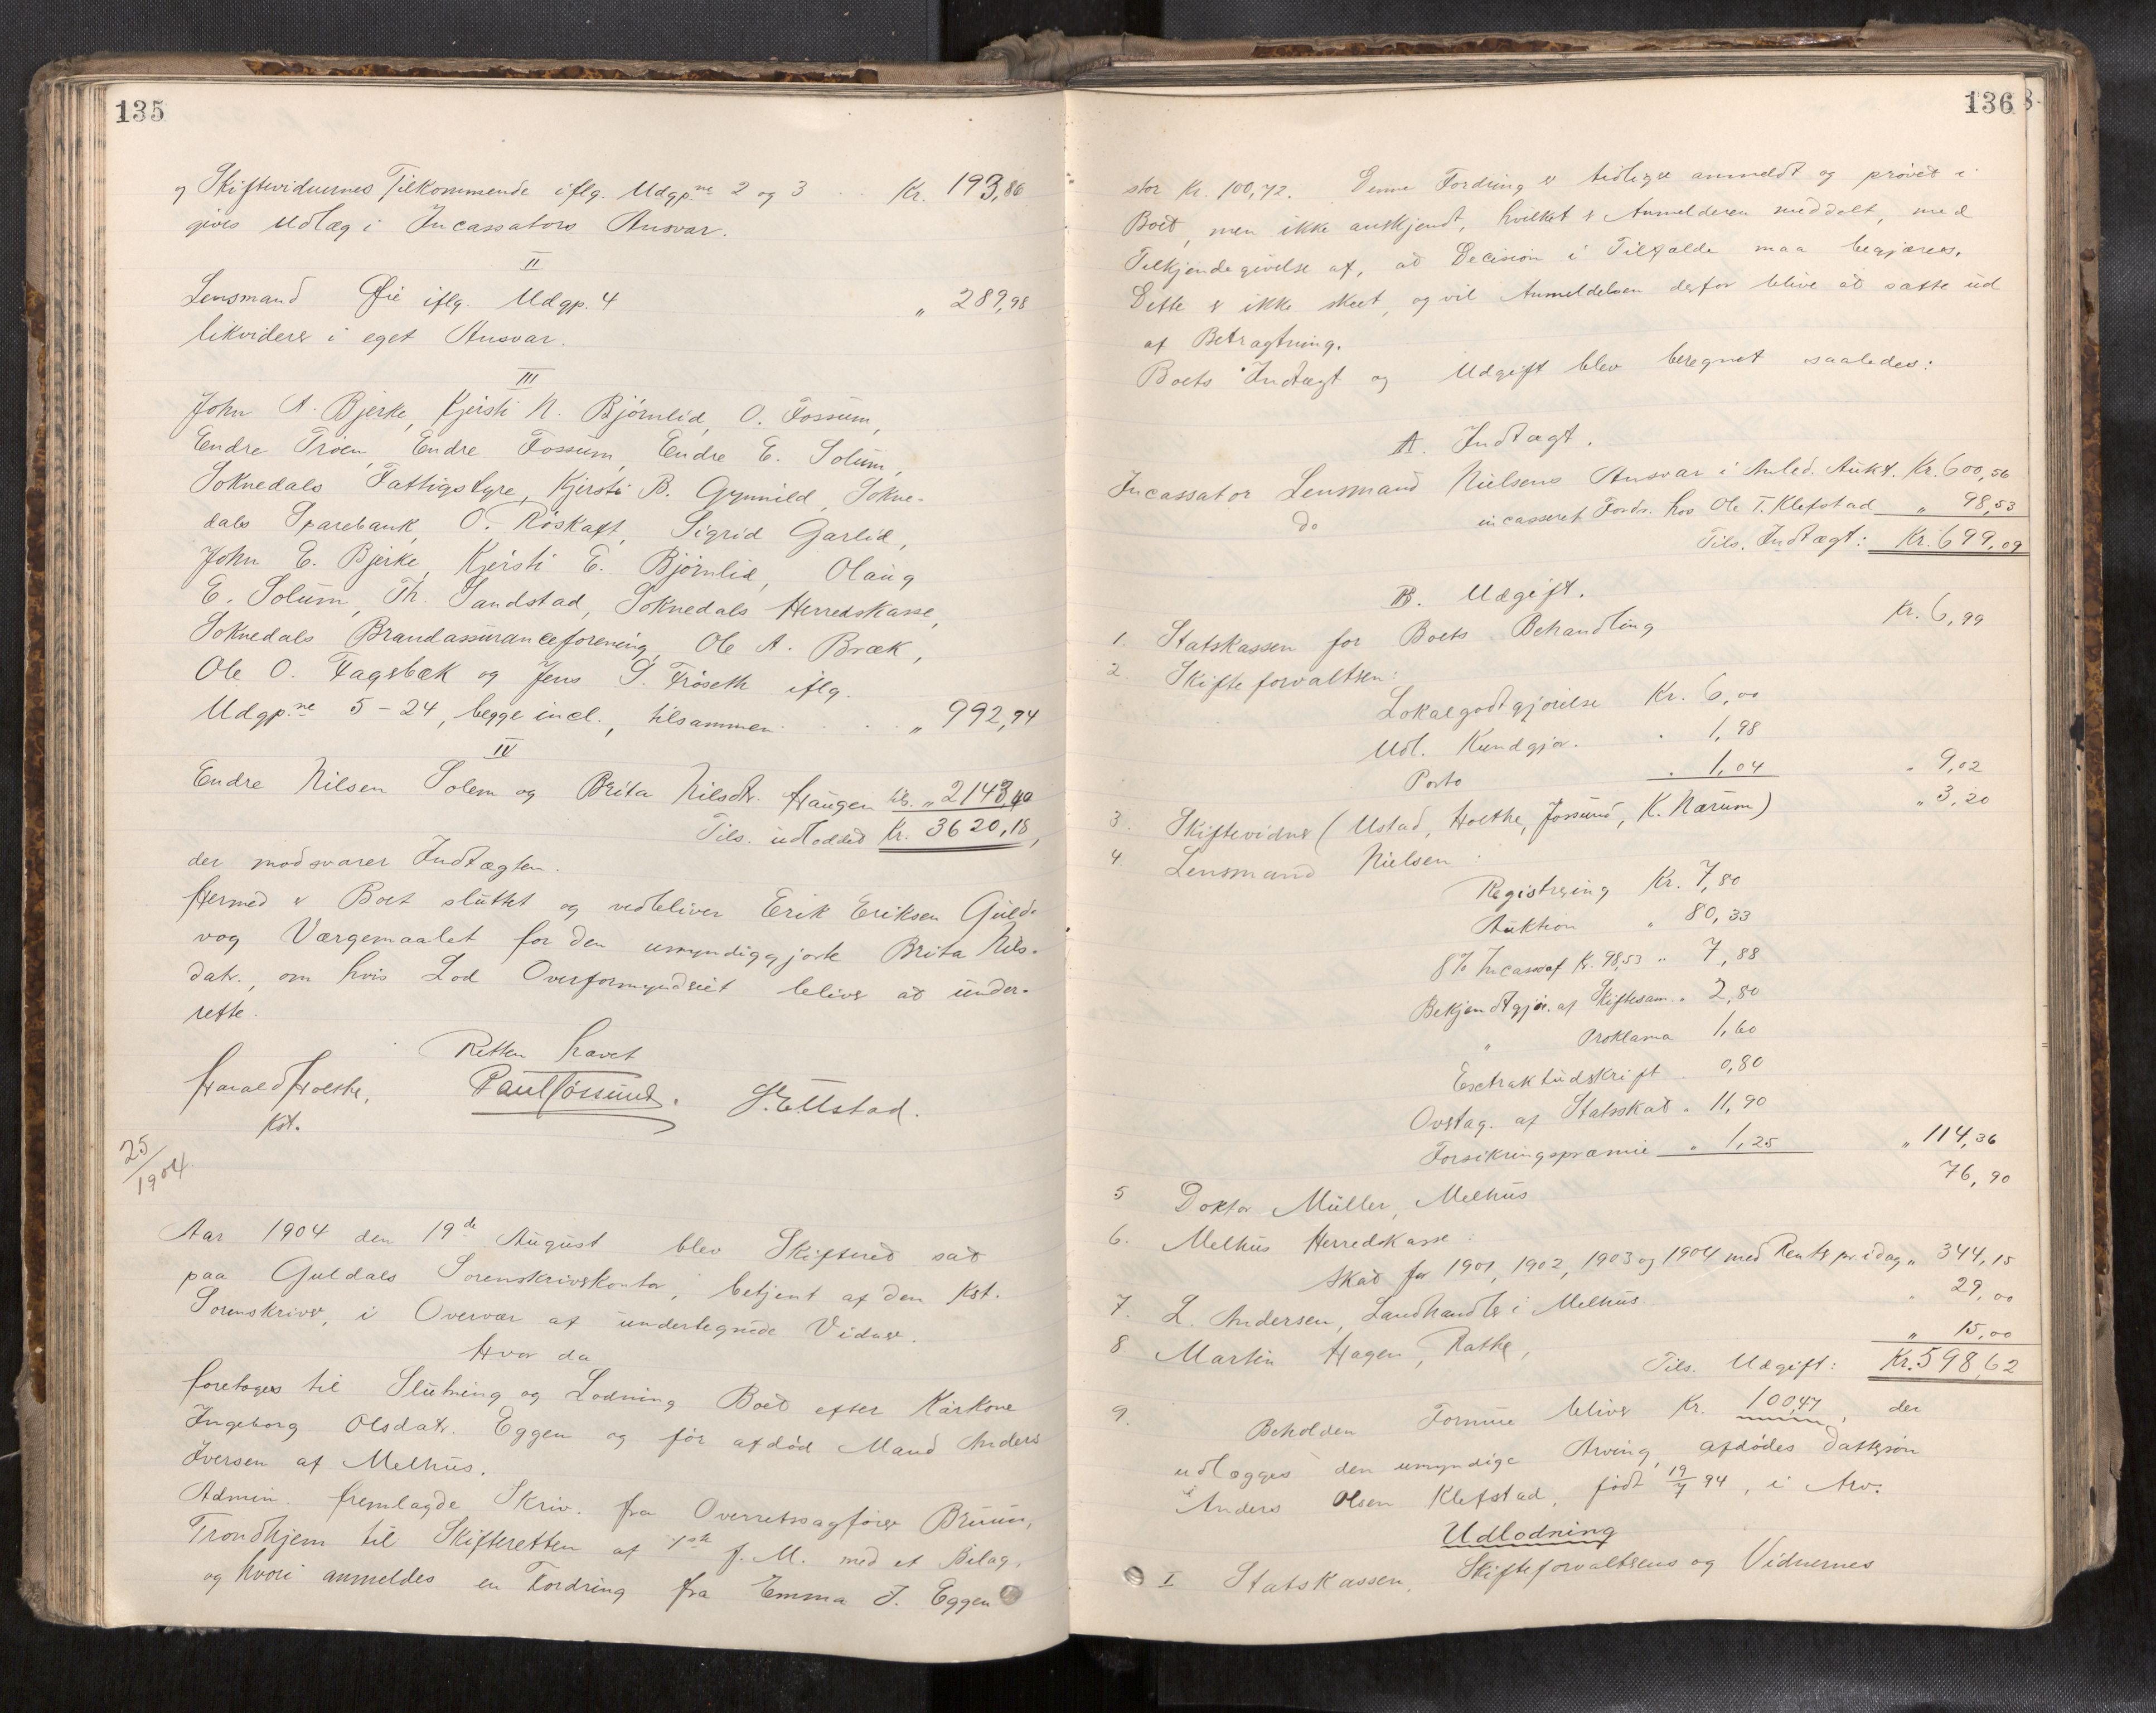 135
og Skiftevidnernes Tilkommende iflg. Udgp.ne 2 og 3 .. Kr. 193,86
gives Udlæg i Incassators Ansvar.
II
Lensmand Øie iflg. Udgp. 4 „ 289,98
likviderer i eget Ansvar.
III
John A. Bjerke, Kjersti N. Bjørnlid, O. Fossum,
Endre Trøen, Endre Fossum, Endre E. Solum,
Soknedals Fattigstyre, Kjersti B. Gynnild, Sokne-
dals Sparebank, O. Røskaft, Sigrid Garlid,
John E. Bjerke, Kjersti E. Bjørnlid, Olaug
E. Solum, Th. Sandstad, Soknedals Herredskasse,
Soknedals Brandassuranceforening, Ole A. Bræk,
Ole O. Fagsbæk og Jens S. Frøseth iflg.
Udgp.ne 5-24, begge incl., tilsammen . . . „ 992,94
IV
Endre Nilsen Solem og Brita Nilsdtr. Haugen tils. „ 2143,40
Tils. udloddet Kr. 3620,18,
der modsvarer Indtægten.
Hermed er Boet sluttet og vedbliver Erik Eriksen Guld-
vog Værgemaalet for den umyndiggjorte Brita Nils-
datr., om hvis Lod Overformynderiet bliver at under-
rette.
Retten hævet
Harald Holthe, Paul Jøssund. S. Ustad.
Kst.
25/1904
Aar 1904 den 19de August blev Skifteret sat
paa Guldals Sorenskriverkontor, betjent af den Kst.
Sorenskriver, i Overvær af undertegnede Vidner.
Hvor da
foretoges til Slutning og Lodning Boet efter Kårkone
Ingeborg Olsdatr. Eggen og før afdød Mand Anders
Iversen af Melhus.
Admin. fremlagde Skriv. fra Overretssagfører Bruun,
Trondhjem til Skifteretten af 4de f. M. med et Bilag,
og hvori anmeldes en Fordring fra Emma J. Eggen
136
stor Kr. 100,72. Denne Fordring er tidligere anmeldt og prøvet i
Boet, men ikke anerkjendt, hvilket er Anmelderen meddelt, med
Tilkjendegivelse af, at Decision i Tilfælde maa begjæres.
Dette er ikke skeet, og vil Anmeldelsen derfor blive at sætte ud
af Betragtning.
Boets Indtægt og Udgift blev beregnet saaledes:
A. Indtægt.
Incassator Lensmand Nielsens Ansvar i Anled. Aukt. Kr. 600,56
do incasseret Fordr. hos Ole T. Klefstad „ 98,53
Tils. Indtægt: Kr. 699,09
B. Udgift.
1. Statskassen for Boets Behandling Kr. 6,99
2. Skifteforvalteren:
Lokalgodtgjørelse Kr. 6,00
Udl. Kundgjør. . 1,98
Porto . 1,04 „ 9,02
3. Skiftevidner (Ustad, Holthe, Jøssund, K. Nærum) „ 3,20
4. Lensmand Nielsen:
Registrering Kr. 7,80
Auktion „ 80,33
8% Incasso af Kr. 98,53 „ 7,88
Bekjendtgjør. af Skiftesam. „ 2,80
„ Proklama 1,60
Extraktudskrift . 0,80
Overtag. af Statsskat „ 11,90
Forsikringspræmie „ 1,25 „ 114,36
5 Doktor Müller, Melhus 76,90
6. Melhus Herredskasse:
Skat for 1901, 1902, 1903 og 1904 med Renter pr. idag „ 344,15
7. L. Andersen, Landhandler i Melhus „ 29,00
8 Martin Hagen, Rathe, „ 15,00
Tils. Udgift: Kr. 598,62
9. Beholden Formue bliver Kr. 100,47, der
udlægges den umyndige Arving, afdødes Dattersøn
Anders Olsen Klefstad, født 19/7 94, i Arv.
Udlodning
I Statskassen, Skifteforvalterens og Vidnernes